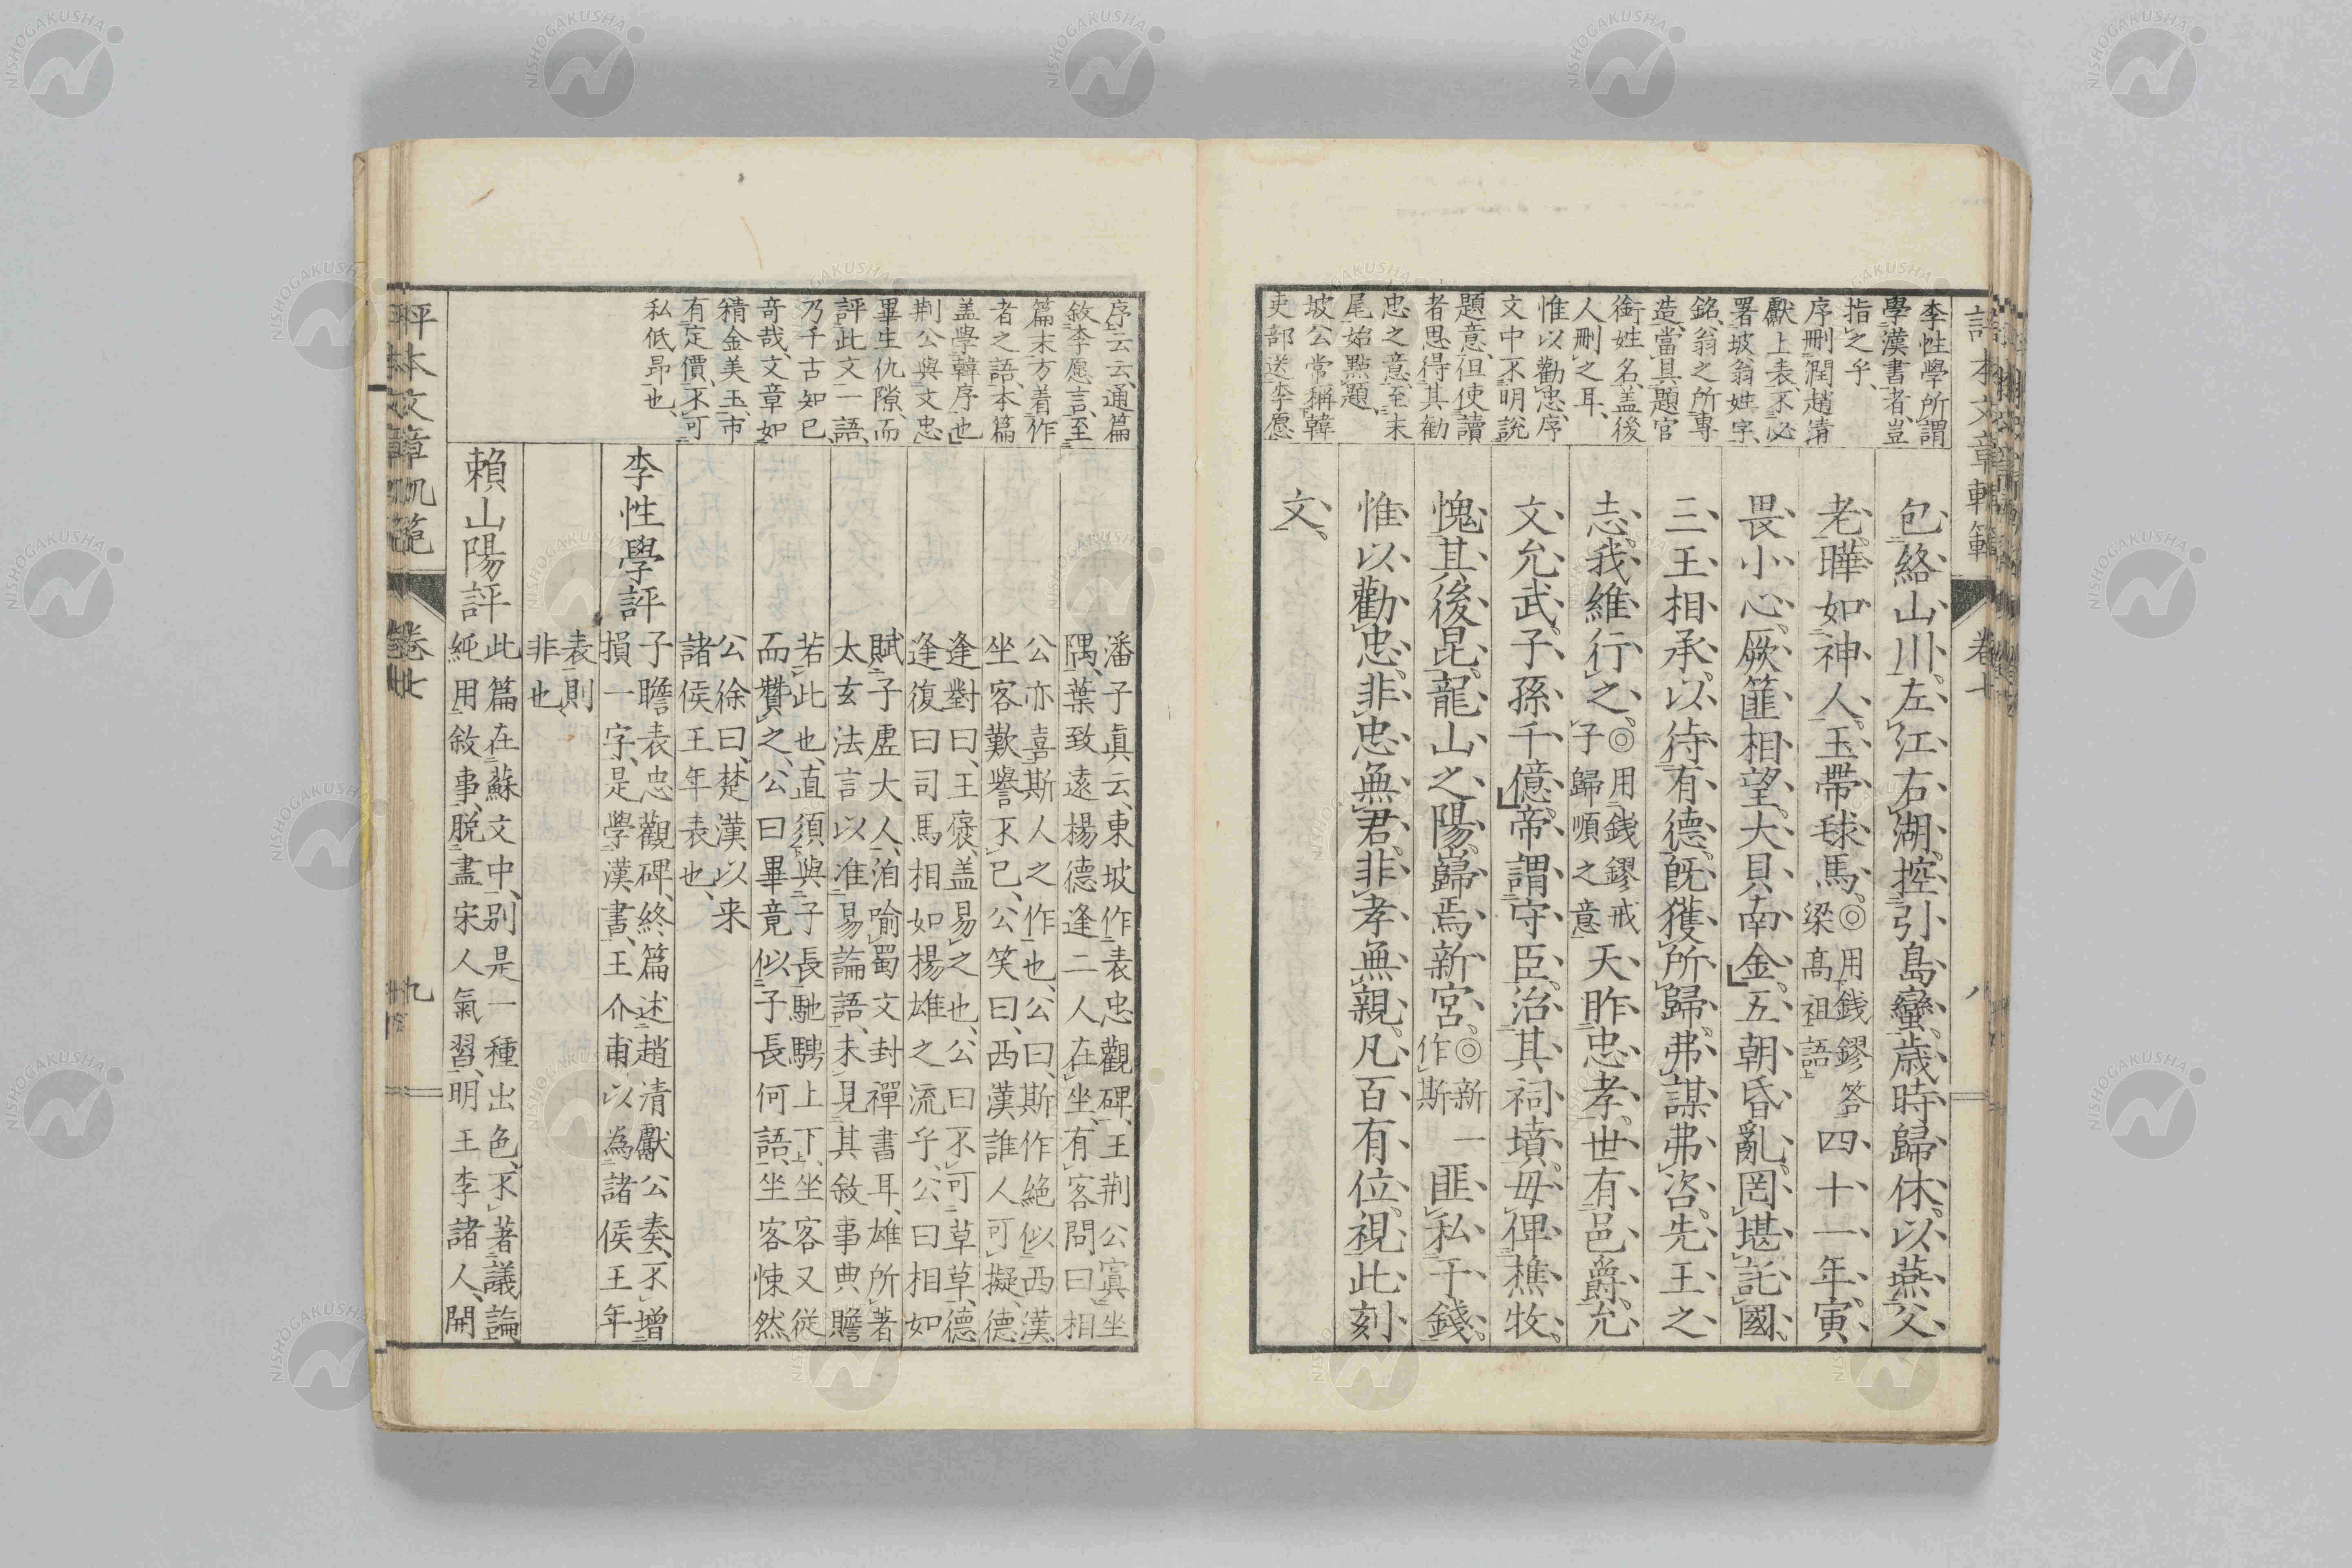 李性學所謂
學漢書者、豈
指之乎、
序刪潤趙清
獻上表、不必
署坡翁姓字、
銘翁之所專
造、當具題官
銜姓名、蓋後
人刪之耳、
惟以勸忠、序
文中不明說
題意、但使讀
者思得其勸
忠之意、至末
尾始點題、
坡公常稱韓
吏部送李愿
包絡山川。左江右湖。控引島蠻。歳時歸休。以燕父
老。曄如神人。玉帶毬馬。◎用銭鏐答梁高祖語四十一年。寅
畏小心。厥篚相望。大貝南金。五朝昏亂。罔堪託國。
三王相承。以待有德。既獲所歸。弗謀弗咨。先王之
志。我維行之。◎用銭鏐戒子歸順之意天昨忠孝。世有邑爵。允
文允武。子孫千億。帝謂守臣。治其祠墳。毋俾樵牧。
愧其後昆。龍山之陽。巋焉新宮。◎新一作斯匪私于錢。
惟以勸忠。非忠無君。非孝無親。凡百有位。視此刻
文。
卷七
八
序云云、通篇
敘李愿言、至
篇末方着作
者之語、本篇
盖學韓序也
荆公與文忠
畢生仇隙、而
評此文一語、
乃千古知己、
奇哉、文章如
精金美玉、市
有定價、不可
私低昻也、
潘子眞云、東坡作表忠觀碑、王荆公寘坐
隅、葉致遠楊德逢二人在坐、有客問曰、相
公亦喜斯人之作也、公曰、斯作絶似西漢、
坐客歎譽不已、公笑曰、西漢誰人可擬、德
逢對曰、王褒、盖易之也、公曰、不可草草、德
逢復曰、司馬相如揚雄之流乎、公曰、相如
賦子虛大人、洎喻蜀文封禪書耳、雄所著
太玄法言以准易論語、未見其敘事典贍
若此也、直須與子長馳騁上下、坐客又従
而贊之、公曰、畢竟似子長何語、坐客悚然、
公徐曰、楚漢以来
諸侯王年表也、
李性學評
子瞻表忠觀碑、終篇述趙清獻公奏、不增
損一字、是學漢書、王介甫以為諸侯王年
表則
非也、
賴山陽評
此篇在蘇文中、別是一種出色、不著議論
純用敘事、脱盡宋人氣習、明王李諸人、開
卷七
九